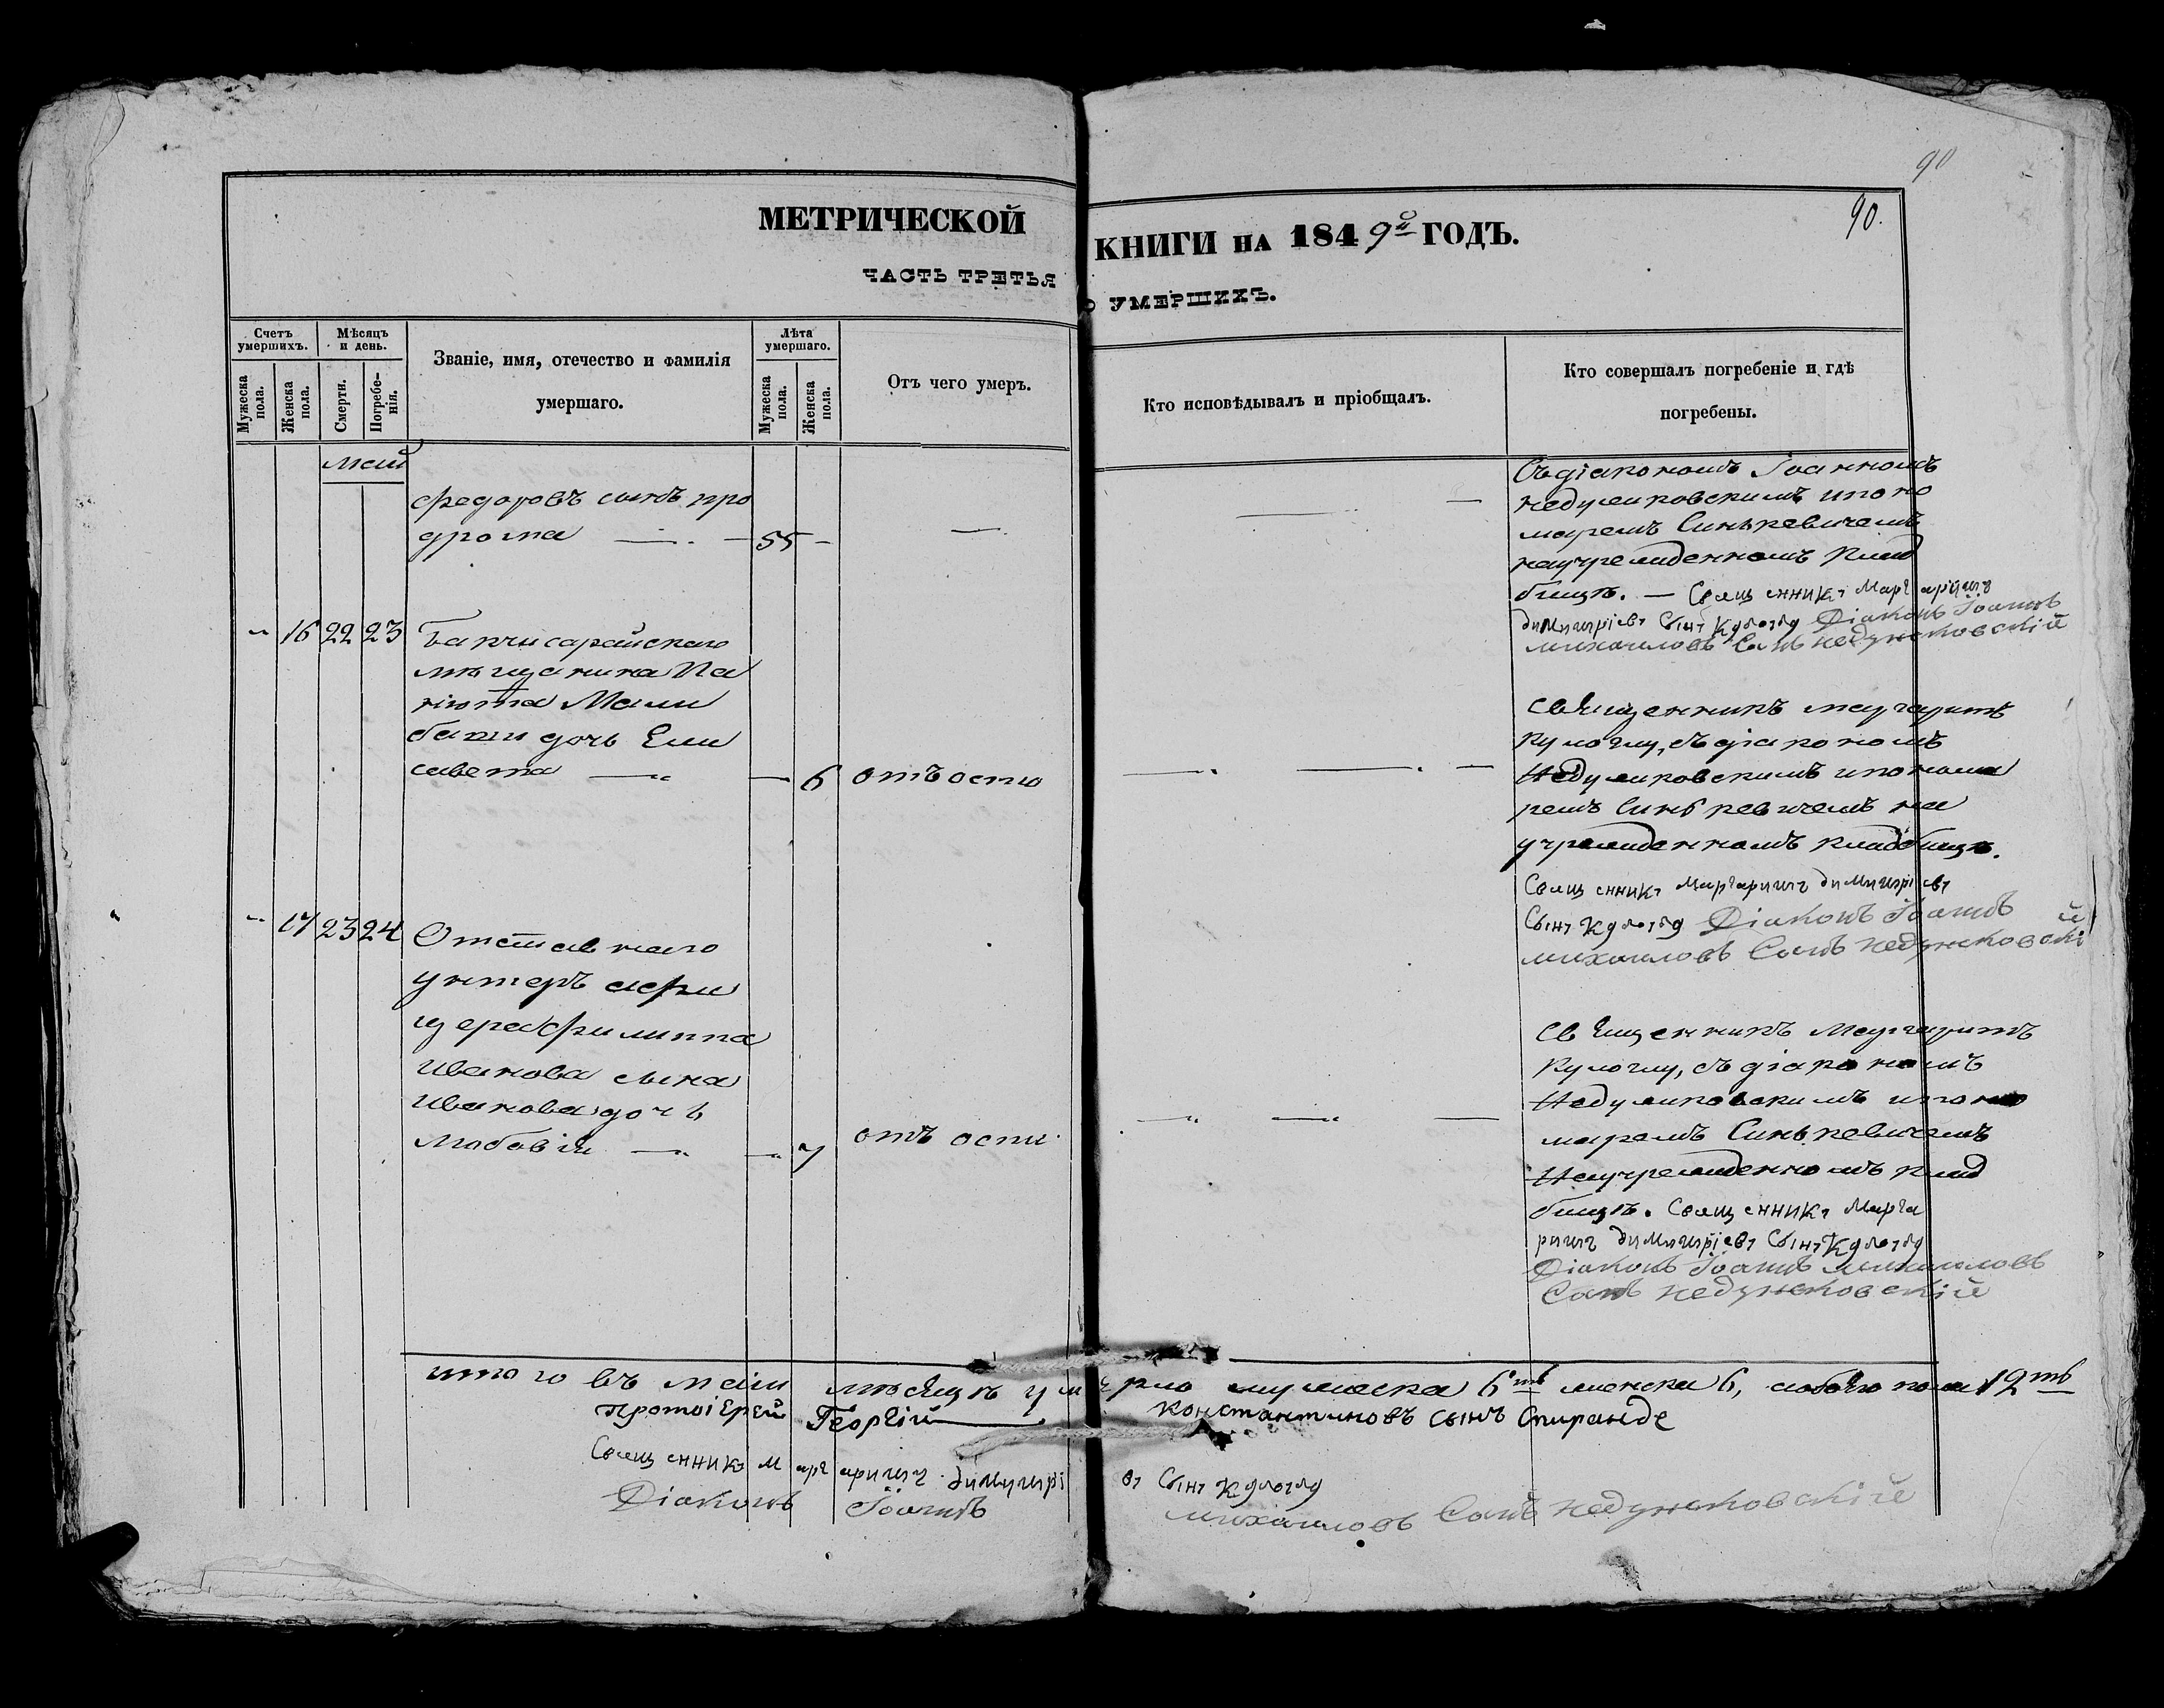 90
МЕТРИЧЕСКОЙ КНИГИ НА 1849й ГОДЪ.
90.
ЧАСТЬ ТРЕТЬЯ О УМЕРШИХЪ.
Счетъ умершихъ.
Мужеска пола.
Женска пола.
Мѣсяцъ и день.
Смерти.
Погребенія.
Званіе, имя, отечество и фамилія
умершаго.
Лѣта умершаго.
Мужеска пола.
Женска пола.
Отъ чего умеръ.
Кто исповѣдывалъ и пріобщалъ.
Кто совершалъ погребеніе и гдѣ
погребены.
Маій
Федоровъ сынъ про
дрома — 55 —
Съ діакономъ Іоанномъ
Недумковскимъ и поно
маремъ Синькевичемъ
на учрежденномъ клад
бищѣ. — Священникъ Маргаритъ
Димитріевъ Сынъ Кулоглу Діаконъ Іоаннъ
Михаиловъ Сынъ Недумковскій
16 22 23 Бакчисарайскаго
мѣщанина Па
нюта
баши дочь Ели
савета — 6 отъ оспы
Священникъ Маргаритъ
Кулоглу, съ діакономъ
Недумковскимъ и понома
ремъ Синькевичемъ на
учрежденномъ кладбищѣ.
Священникъ Маргаритъ Димитріевъ
Сынъ Кулоглу Діаконъ Іоаннъ
Михаиловъ Сынъ Недумковскій
17 23 24 Отставнаго
унтеръ офи
цера Филиппа
Иванова сына
Иванова дочь
Любовій — 7 отъ оспы
Священникъ Маргаритъ
Кулоглу, съ діакономъ
Недумковскимъ и поно
маремъ Синькевичемъ
На учрежденномъ клад
бищѣ. Священникъ Марга
ритъ Димитріевъ Сынъ Кулоглу
Діаконъ Іоаннъ Михаиловъ
Сынъ Недумковскій
итого въ маіи мѣсяцѣ умерло мужеска 6ть женска 6, обоего пола 12ть
Протоіерей Георгій Константиновъ сынъ Спиранде
Священникъ Маргаритъ Димитріевъ Сынъ Кулоглу
Діаконъ Іоаннъ Михаиловъ Сынъ Недумковскій